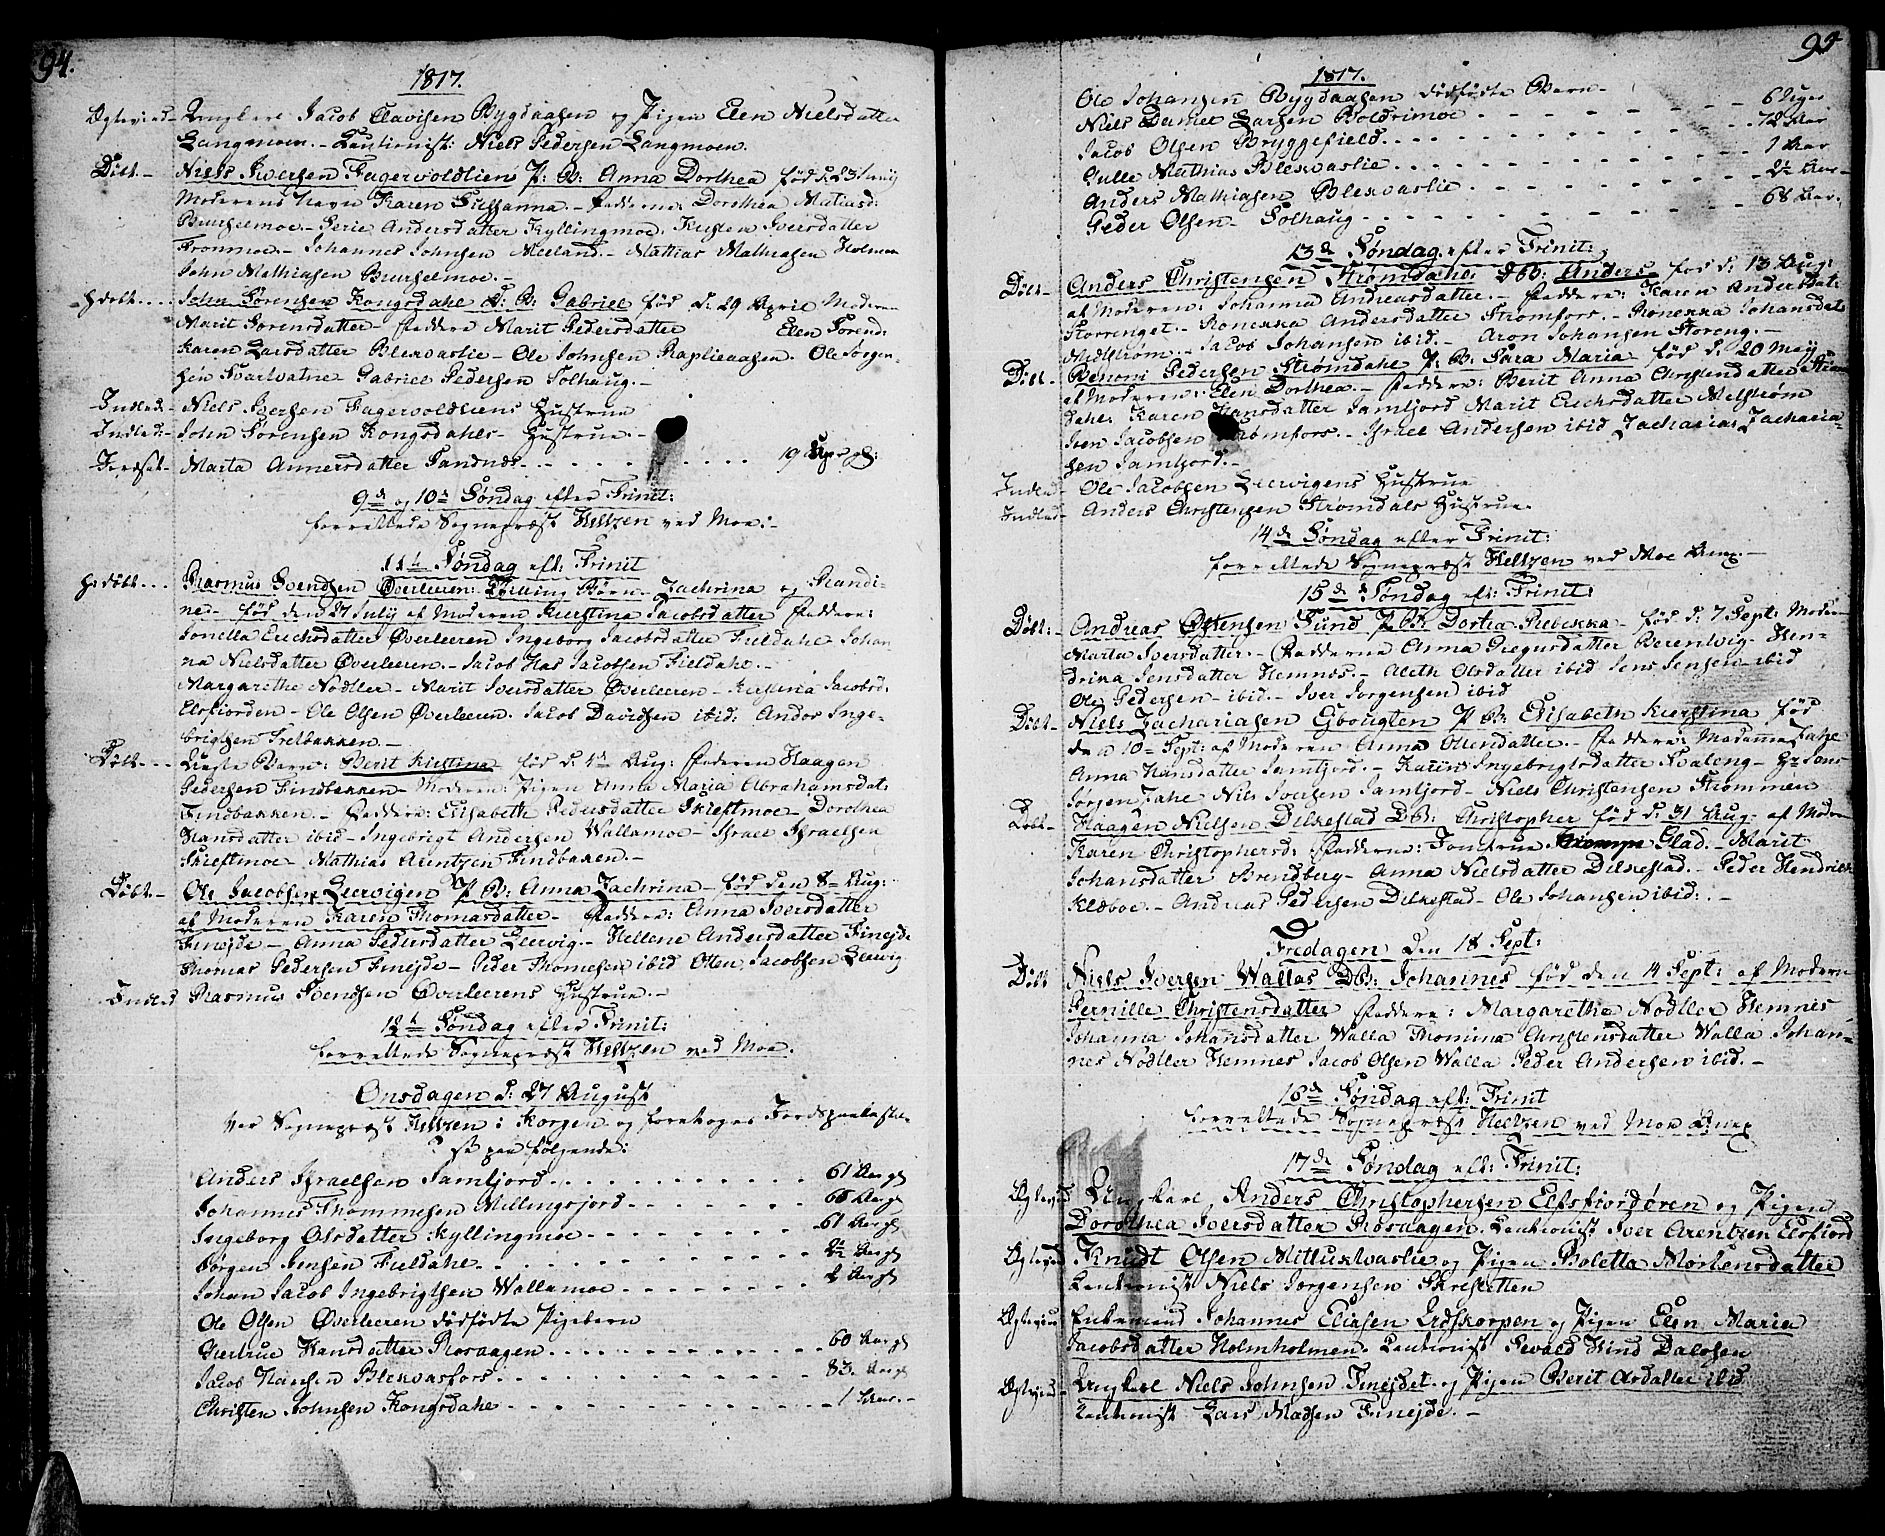 94.
1817.
Ægtevied- Ungkarl Jacob Clavisen Bygdaasen og Pigen Elen Nielsdatter
Langmoen. - Cautionist: Niels Pedersen Langmoen.
Døbt.- Niels Iversen Fagervoldlien P: B: Anna Dorthea fød d.
Moderens Navn Karen Sussanna. - Faddere: Dorothea Matiasd:
Buurselmoe - Andersdatter Kyllingmoe. Kirsten Iversdatter
Brommoe - Johannes Johnsen Meeland. - Mattias Mathiasen Holmen
John Mathiasen Buurselmoe. -
Hdøbt.... John Sørensen Kongsdahl d: B: Gabriel fød d: 29 April Moderen
Marit Sorensdatter - Faddere Marit Pedersdatter Elen Sørend:
Karen Larsdatter Blexvaslie - Ole Johnsen Raplieaasen. Ole Jørgen-
sen Svartvatne - Gabriel Pedersen Solhaug. -
Indled- Niels Iversen Fagervoldliens Hustrue
Indled:- John Sørensen Kongsdahls - Hustrue. -
Jordfæst- Marta Annersdatter Sandnæs. . . . . . . 19
9de og 10de Søndag efter Trinit:
forrettede Sognepræst Heltzen ved Moe: -
11te Søndag eft: Trinit
Hdøbt... Rasmus Svendsen Øverleeren: Tvilling Børn - Zachrina og Randi-
ne - fød den 27 July af Moderen Kierstina Jacobsdatter Faddere:
Jonella Erichsdatter Øverleeren Ingeborg Jacobsdatter Fieldahl Johan
na Nielsdatter Øverleeren. - Jacob Has Jacobsen Fieldahl. -
Margarethe Nodler - Marit Iversdatter Øverleeren - Kirstina Jacobsd:
Elsfiorden - Ole Olsen Øverleeren. Jacob Davidsen ibid: Andor Inge-
brigtsen Bretbakken. -
Døbt... Uægte Barn: Berit Kirstina fød d. 1te Aug: Faderen Haagen
Pedersen Findbakken - Moderen: Pigen Anna Maria Abrahamsdat:
Findbakken. - Faddere: Elisabeth Pedersdatter Skieftmoe - Dorothea
Hansdatter ibid - Ingebrigt Andersen Wallamoe - Israel Israelsen
Skieftmoe - Mathias Arentzen Findbakken. -
Døbt - Ole Jacobsen Leervigen P: B: Anna Zachrina - fød den 8de Aug:
af Moderen Karen Thomasdatter - Faddere: Anna Iversdatter
Finejde - Anna Pedersdatter Leervig. - Hellene Andersdatter Finejde
Thomas Pedersen Finejde - Peder Thomesen ibid Otten Jacobsen Leervig
Indled Rasmus Svendsen Øverleerens Hustrue. -
12te Søndag efter Trinit:
forrettede Sognepræst Heltzen ved Moe.
Onsdagen d: 27 August
var Sognepræst Heltzen i Korgen og foretoges Jordspaakastel-
se paa følgende:
Anders Israelsen Jamtfjord. . . . 61 Aar gl
Johannes Thommesen Millingsjord . . . 66 Aar gl
Ingeborg Olsdatter Kyllingmoe . . . 61 Aar gl
Jørgen Jensen Fieldahl. . . . 2½ Aar gl
Johan Jacob Ingebrigtsen Wallamoe . . . 2 Aar gl
Ole Olsen Øverleeren dødfødte Pigebarn
Giertrue Hansdatter Rosaagen . . . 60 Aar gl
Jacob Hansen Blexvasfors . . . 83. Aar gl
Christen Johnsen Kongsdahl . . . 1 Aar. -
95
1817.
Ole Johansen Bygdaasen dødfødte Barn -
Niels Damet Larsen Boldrimoe . . . 6 Uger
Jacob Olsen Bryggefield . . . 72 Aar
Gulle Mathias Blexvaslie . . . 1 Aar
Anders Mathiasen Blexvaslie . . . 2½ Aar -
Peder Olsen - Solhaug . . . 68 Aar.
13de Søndag efter Trinit:
Døbt - Anders Christensen Strømdahl: d B: Anders fød d: 13 Aug:
af Moderen: Johanna Andreasdatter. - Faddere: Karen Andersdat:
Storrenget. - Ronekka Andersdatter Strømfors. - Ronekka Johansdat:
Medstrøm. - Jacob Johansen ibid. - Aron Johansen Storeng. -
Døbt - Benoni Pedersen Strømdahl P: B: Sara Maria fød d: 20 May
af Moderen: Elen Dorthea. - Faddere: Berit Anna Christendatter Strøm
dahl Karen Hansdatter Jamtjord Marit Erichsdatter Melstrøm
Iven Jacobsen Strømfors. - Israel Andersen ibid Zacharias Zacharia-
sen Jamtjord. -
Indled - Ole Jacobsen Leervigens Hustrue
Indled - Anders Christensen Strømdals Hustrue.
14de Søndag efter Trinit:
forrettede Sognepræst Heltzen ved Moe Anex. -
15de Søndag ef: Trinit:
Døbt: - Andreas Østensen Sund P B: Dortea Rebekka - fød d: 7 Sept: Moderen
Marta Iversdatter. - Fadderne Anna Gregusdatter Berenvig - Hen-
drika Jensdatter Hemnes. - Aleth Olsdatter ibid Jens Jensen - ibid
Ole Pedersen - ibid. - Iver Jørgensen ibid
Døbt - Niels Zachariasen Gbougten P B: Elisabeth Kierstina fød
den 10de Sept: af Moderen Anna Ottendatter. - Faddere: Madame Zahl
Anna Hansdatter Jamtjord. - Karen Ingebrigtsdatter Kvaleng - Hr Jens
Jørgen Zahl Niels Iversen Jamtjord - Niels Christensen Strømmen
Døbt - Haagen Nielsen Dilkestad D B: Christopher fød d: 31 Aug: af Moderen
Karen Christophersd: Faddere: Jomfrue Glad. - Marit
Johansdatter Brendberg - Anna Nielsdatter Dilkestad. - Peder Hendrich
Klæboe. - Andreas Pedersen Dilkestad - Ole Johansen ibid: -
Fredagen den 18 Sept:
Døbt Niels Iversen Wallas D B: Johannes fød den 14 Sept: af Moderen
Pernille Christensdatter Faddere: Margaretha Nodler Hemnes
Johanna Johansdatter Walla Thomina Christensdatter Walla Johan-
nes Nodler Hemnes Jacob Olsen Walla Peder Andersen ibid. -
16de Søndag eft: Trinit
forrettede Sognepræst Heltzen ved Moe Anex
17de Søndag eft: Trinit:
Ægtevied Ungkarl Anders Christophersen Elsfiordøren og Pigen
Dorothea Iversdatter Rosaagen. Cautionist Iver Arentzen Elsfiord
Ægtevied Knudt Olsen Mittuxlvaslie og Pigen Boletta Mortensdatter
Cautionist Niels Jørgensen Skresletten
Ægtevied Enkemand Johannes Eliasen Lidskorpen og Pigen Elen Maria
Jacobsdatter Holmholmen. Cautionist Sevald Hind Dalosen
Ægtevied - Ungkarl Niels Johnsen Finejdet og Pigen Berit Arsdatter ibid
Cautionist Lars Madsen Finejde. -